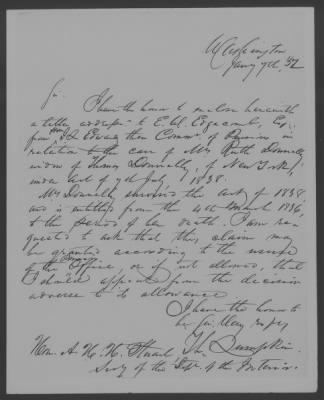 Washington
Jany 7th, 52
Sir.
I have the honor to enclose herewith
a letter addressed to E. H. Edgecomb, Esq.
from J L Edwards then Commr. of Pensions in
relation to the case of Mrs Ruth Donnelly
widow of Thomas Donnelly, of New York,
under act of 7th July 1838.
Mrs Donnelly survived the act of 1838
and is entitled from the 4th March 1836,
to the period of her death. I am re-
quested to ask that this claim may
be granted according to the usage
of the Office, or if not allowed, that
I should appeal from the decision
adverse to its allowance
I have the honor to
be Sir, Very respy
Th. Lumpkin.
Hon. A. H. H. Stuart,
Secy of the Dept. of the Interior.